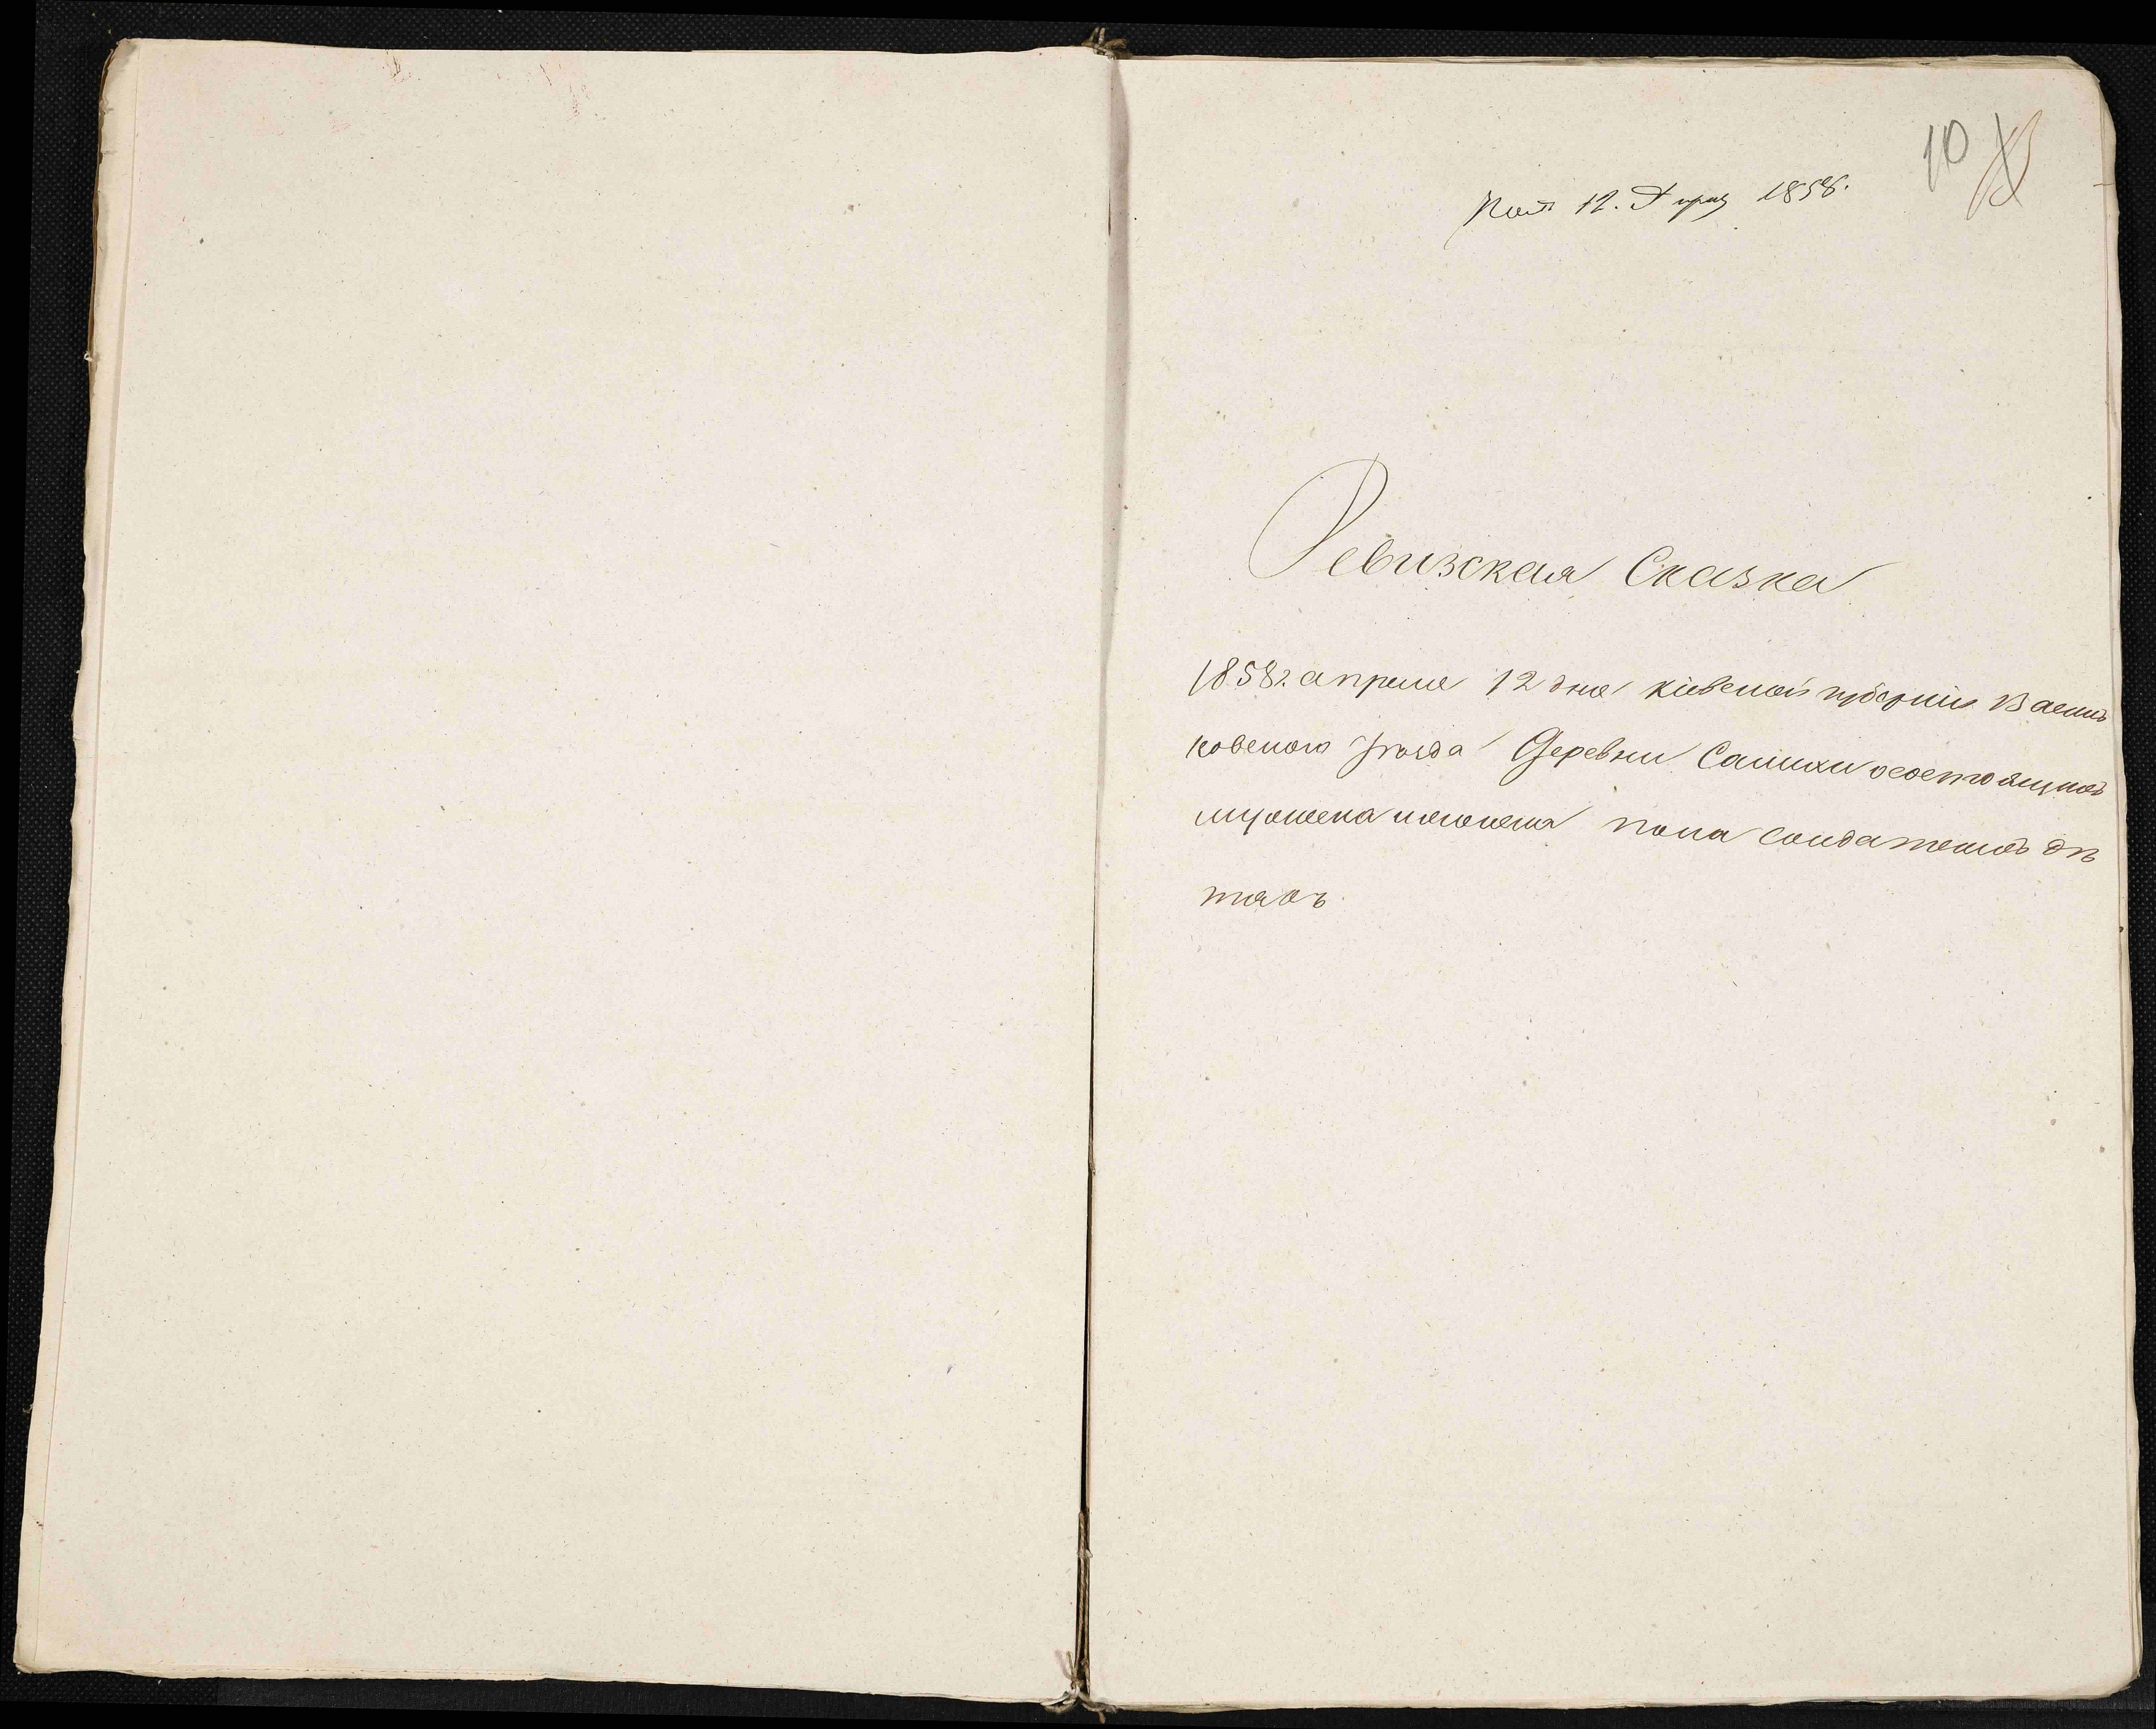 10
12. Апрѣ 1858.
Ревизская Сказка
1858 г. апреля 12 дня Кіевской губерніи Васил
ковского уѣзда Деревни Салихи о состоящихъ
мужеска и женска пола солдатскихъ дѣ
тяхъ